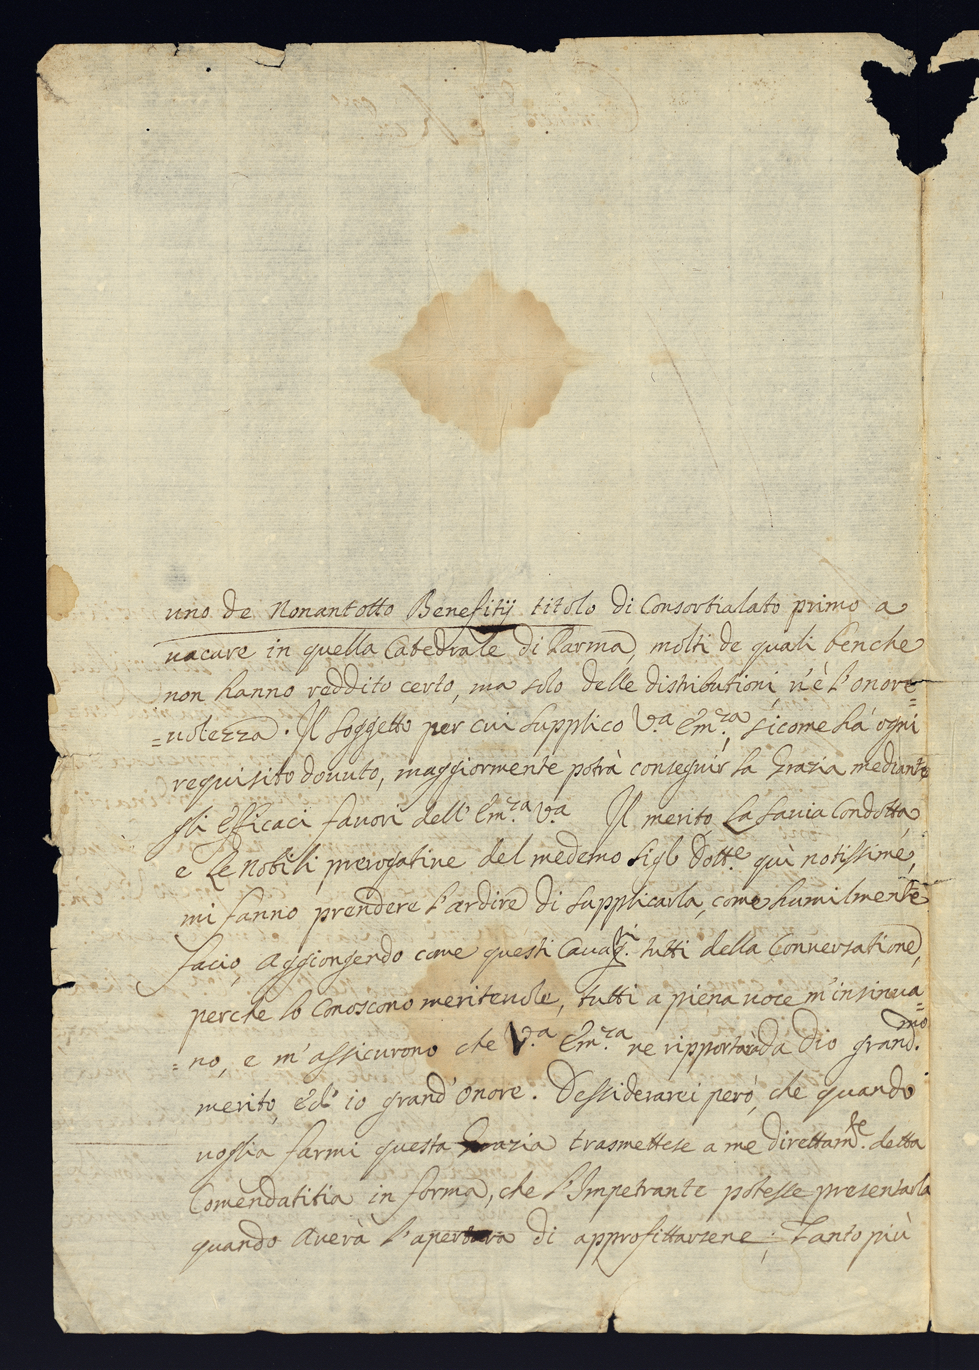 uno de Nonantotto Benefitij titolo di Consortialato primo a
vacare in quella Catedrale di Parma, molti de quali benche
non hanno reddito certo, ma solo delle distributioni, v'è l'onore=
=volezza. Il soggetto per cui supplico V.a Em.za, sicome há ogni
requisito dovuto, maggiormente potrà conseguir la Grazia mediante
gli efficaci favori dell'Em.za V.a Il merito, la savia condotta,
e le nobili prerogative del medemo Sig.r Dott.e quì notissime,
mi fanno prendere l'ardire di supplicarla, come humilmente
facio, aggiongendo come questi Cavag.ri tutti della Conversatione,
perche lo conoscono meritevole, tutti a piena voce m'insinua=
=no, e m'assicurono che V.a Em.za ne ripportarà da Dio grand.mo
merito, ed io grand'onore. Dessiderarei però, che quando
voglia farmi questa Grazia trasmettese a me direttam.te detta
Comendatitia in forma, che l'Impetrante potesse presentarla
quando averà l'apertura di approfittarsene; Tanto più